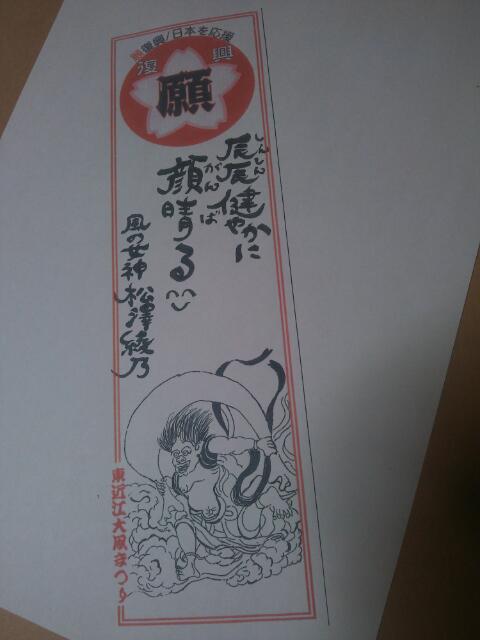 復興!日本を応援
復興
願
しんしん
辰辰健やかに
がんば
顔晴る
風の女神 松澤綾乃
東近江大凧まつり